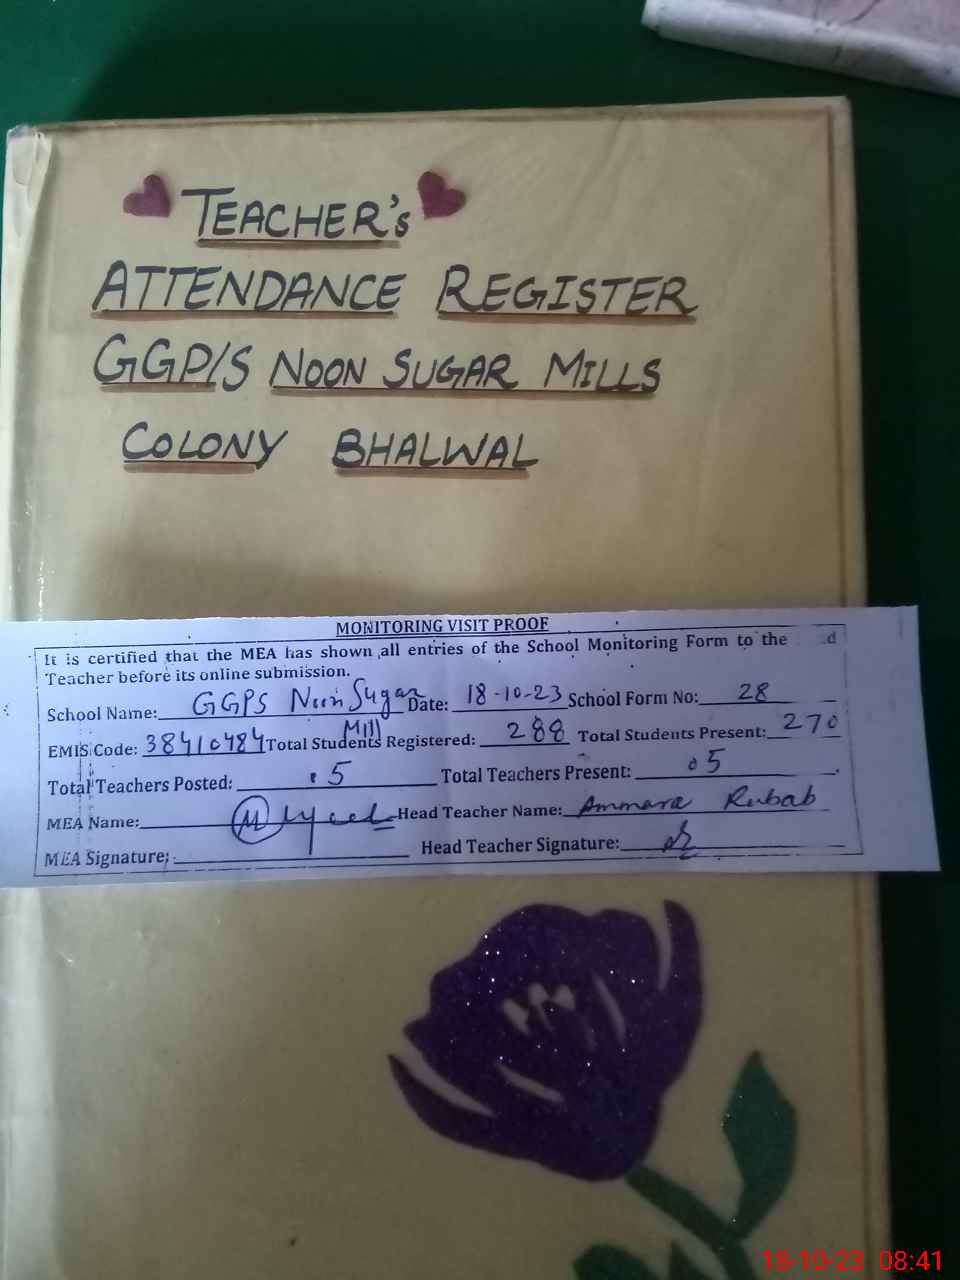 TEACHER's
ATTENDANCE REGISTER
GGP/S NOON SUGAR MILLS
COLONY BHALWAL
MONITORING VISIT PROOF
It is certified that the MEA has shown all entries of the School Monitoring Form to the
Teacher before its online submission.
School Name: GGPS Noon Sugar Mill Date: 18-10-23 School Form No: 28
EMIS Code: 38410484 Total Students Registered: 288 Total Students Present: 270
Total Teachers Posted: 05 Total Teachers Present: 05
MEA Name: Head Teacher Name: Ammara Rubab
MEA Signature: Head Teacher Signature:
18-10-23 08:41